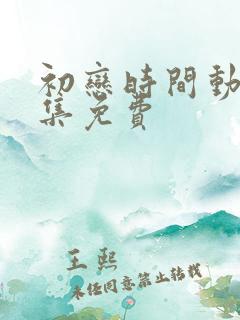 初戀時間動
集免費
王熙
未经同意禁止转载